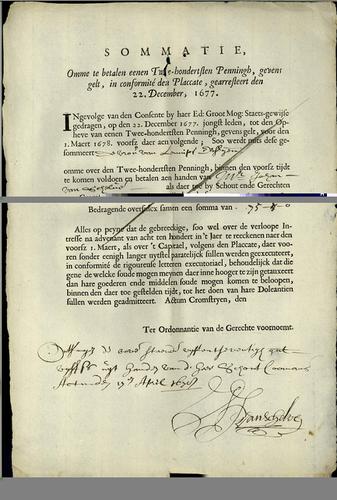 SOMMATIE,
Omme te betalen eenen Twee-hondertsten Penningh, gevens
gelt, in conformité den Placcate, gearresteert den
22. December, 1677.
INgevolge van den Consente by haer Ed: Groot Mog: Staets-gewijse
gedragen, op den 22. December 1677. jongst leden, tot den Op-
heve van eenen Twee-hondertsten Penningh, gevens gelt, voor den
1. Maert 1678. voorsz daer aen volgende; Soo werdt mits dese ge-
sommeert
omme over den Twee-hondertsten Penningh, binnen den voorsz tijdt
te komen voldoen en betalen aen handen van
als daer toe by Schout ende Gerechten
Bedragende oversulcx samen een somma van 75-
Alles op peyne dat de gebreckige, soo wel over de verloope In-
tresse na advenant van acht ten hondert in 't Jaer te reeckenen naer den
voorsz 1. Maert, als over 't Capitael, volgens den Placcate, daer voo-
ren sonder eenigh langer uytstel paratelijck sullen werden geexecuteert,
in conformité de rigoureuse letteren executoriael, behoudelijck dat die
gene de welcke soude mogen meynen daer inne hooger te zijn getauxeert
dan hare goederen ende middelen soude mogen komen te beloopen,
binnen den daer toe gestelden tijdt, tot het doen van hare Doleantien
sullen werden geadmitteert. Actum Cromstryen, den
Ter Ordonnantie van de Gerechte voornoemt.
April